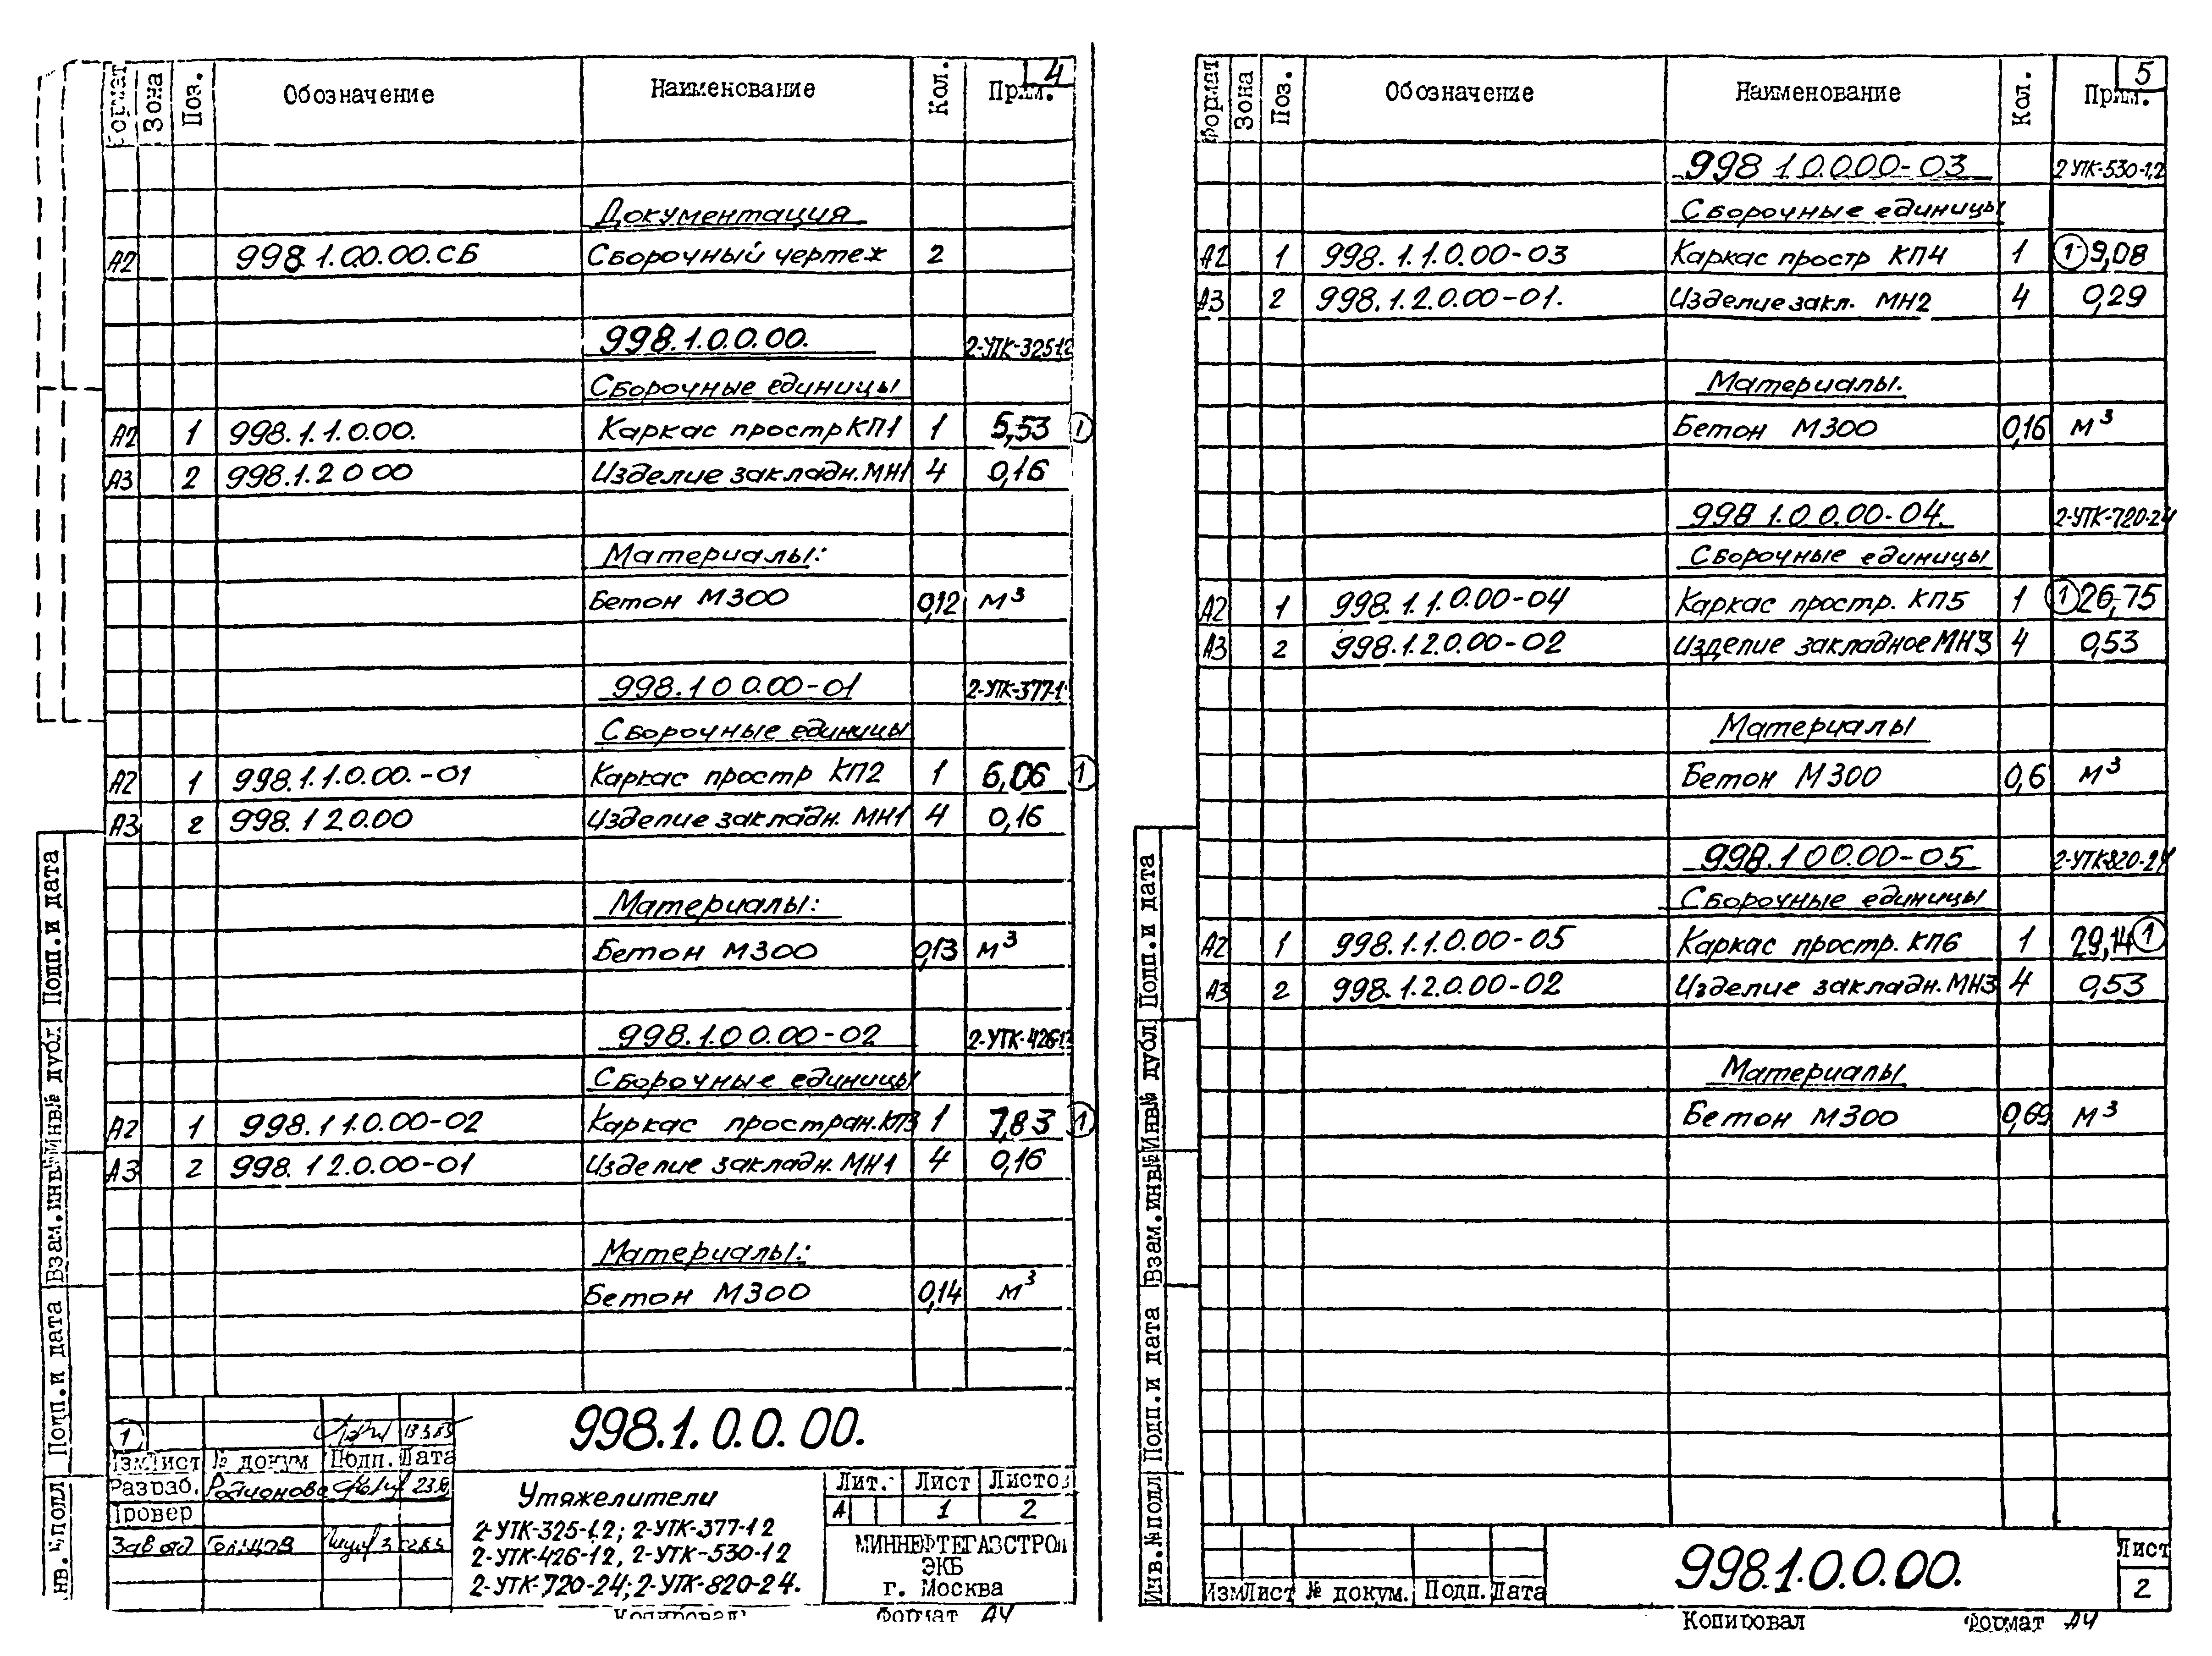 4
Формат Зона Поз. Обозначение Наименование Кол. Прим.
Документация
А2 998.1.00.00.СБ Сборочный чертеж 2
998.1.0.0.00. 2-УТК-325-12
Сборочные единицы
А2 1 998.1.1.0.00. Каркас простр КП1 1 5,53 1
А3 2 998.1.2 0 00 Изделие закладн. МН1 4 0,16
Материалы:
Бетон М300 0,12 м³
998.1 0 0.00-01 2-УТК-377-1
Сборочные единицы
А2 1 998.1.1.0.00.-01 Каркас простр КП2 1 6,06 1
А3 2 998.1 2 0.00 Изделие закладн. МН1 4 0,16
Материалы:
Бетон М300 0,13 м³
998.1.0 0.00-02 2-УТК-426-12
Сборочные единицы
А2 1 998.1 1.0.00-02 Каркас простран. КП3 1 7,83 1
А3 2 998.1 2.0.00-01 Изделие закладн. МН1 4 0,16
Материалы:
Бетон М300 0,14 м³
1
Изм Лист № докум Подп. Дата
Разраб. Родионова
Провер
Зав отд
998.1.0.0.00.
Утяжелители
2-УТК-325-1.2; 2-УТК-377-1 2
2-УТК-426-12, 2-УТК-530-12
2-УТК-720-24; 2-УТК-820-24.
Лит. Лист Листов
А 1 2
МИННЕФТЕГАЗСТРОЙ
ЭКБ
г. Москва
Копировал: Формат А4
Подп. и дата
Инв№ дубл.
Взам. инв№
Подп. и дата
Инв. № подл
5
Формат Зона Поз. Обозначение Наименование Кол. Прим.
998 1 0.000-03 2 УТК-530-1,2
Сборочные единицы
А2 1 998.1.1.0.00-03 Каркас простр КП4 1 1 9,08
А3 2 998.1.2.0.00-01. Изделие закл. МН2 4 0,29
Материалы.
Бетон М300 0,16 м³
998 1.0 0.00-04. 2-УТК-720-24
Сборочные единицы
А2 1 998.1.1.0.00-04 Каркас простр. КП5 1 1 26,75
А3 2 998.1.2.0.00-02 Изделие закладное МН3 4 0,53
Материалы
Бетон М300 0,6 м³
998.1 00.00-05 2-УТК820-24
Сборочные единицы
А2 1 998.1.1.0.00-05 Каркас простр. КП6 1 29,14 1
А3 2 998.1.2.0.00-02 Изделие закладн. МН3 4 0,53
Материалы
Бетон М300 0,69 м³
Изм Лист № докум. Подп. Дата
998.1.0.0.00.
Лист
2
Копировал Формат А4
Подп. и дата
Инв№ дубл
Взам. инв№
Подп. и дата
Инв. № подл